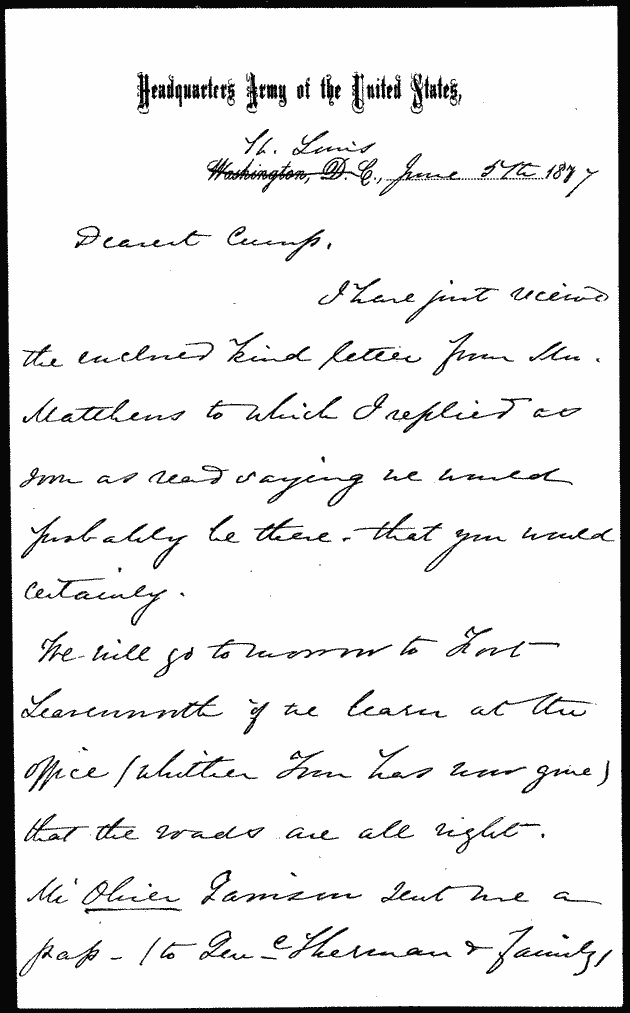 Headquarters Army of the United States,
St. Louis
Washington, D.C., June 5th 1877
Dearest Cump,
I have just received
the enclosed kind letter from Mr.
Matthews to which I replied as
soon as read saying we would
probably be there - that you would
certainly.
We will go tomorrow to Fort
Leavenworth if we learn at the
office (whither Tom has now gone)
that the roads are all right.
Mr Oliver Garrison sent me a
pass - (to Genl Sherman & family)